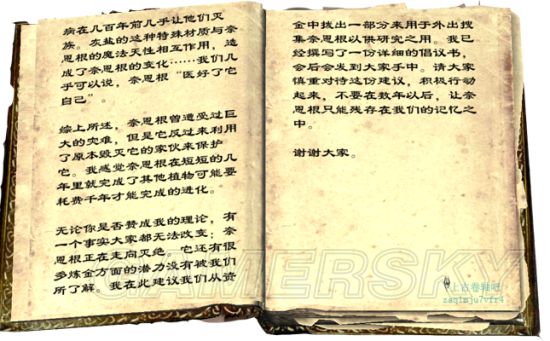 病在几百年前几乎让他们灭
族。灰盐的这种特殊材质与奈
恩根的魔法天性相互作用，造
成了奈恩根的变化……我们几
乎可以说，奈恩根“医好了它
自己”。
综上所述，奈恩根曾遭受过巨
大的灾难，但是它反过来利用
了原本毁灭它的家伙来保护
它。我感觉奈恩根在短短的几
年里就完成了其他植物可能要
耗费千年才能完成的进化。
无论你是否赞成我的理论，有
一个事实大家都无法改变：奈
恩根正在走向灭绝。它还有很
多炼金方面的潜力没有被我们
所了解。我在此建议我们从资
金中拨出一部分来用于外出搜
集奈恩根以供研究之用。我已
经撰写了一份详细的倡议书，
会后会发到大家手中。请大家
慎重对待这份建议，积极行动
起来，不要在数年以后，让奈
恩根只能残存在我们的记忆之
中。
谢谢大家。
GAMERSKY
上古卷轴吧
zaq1mju7vfr4